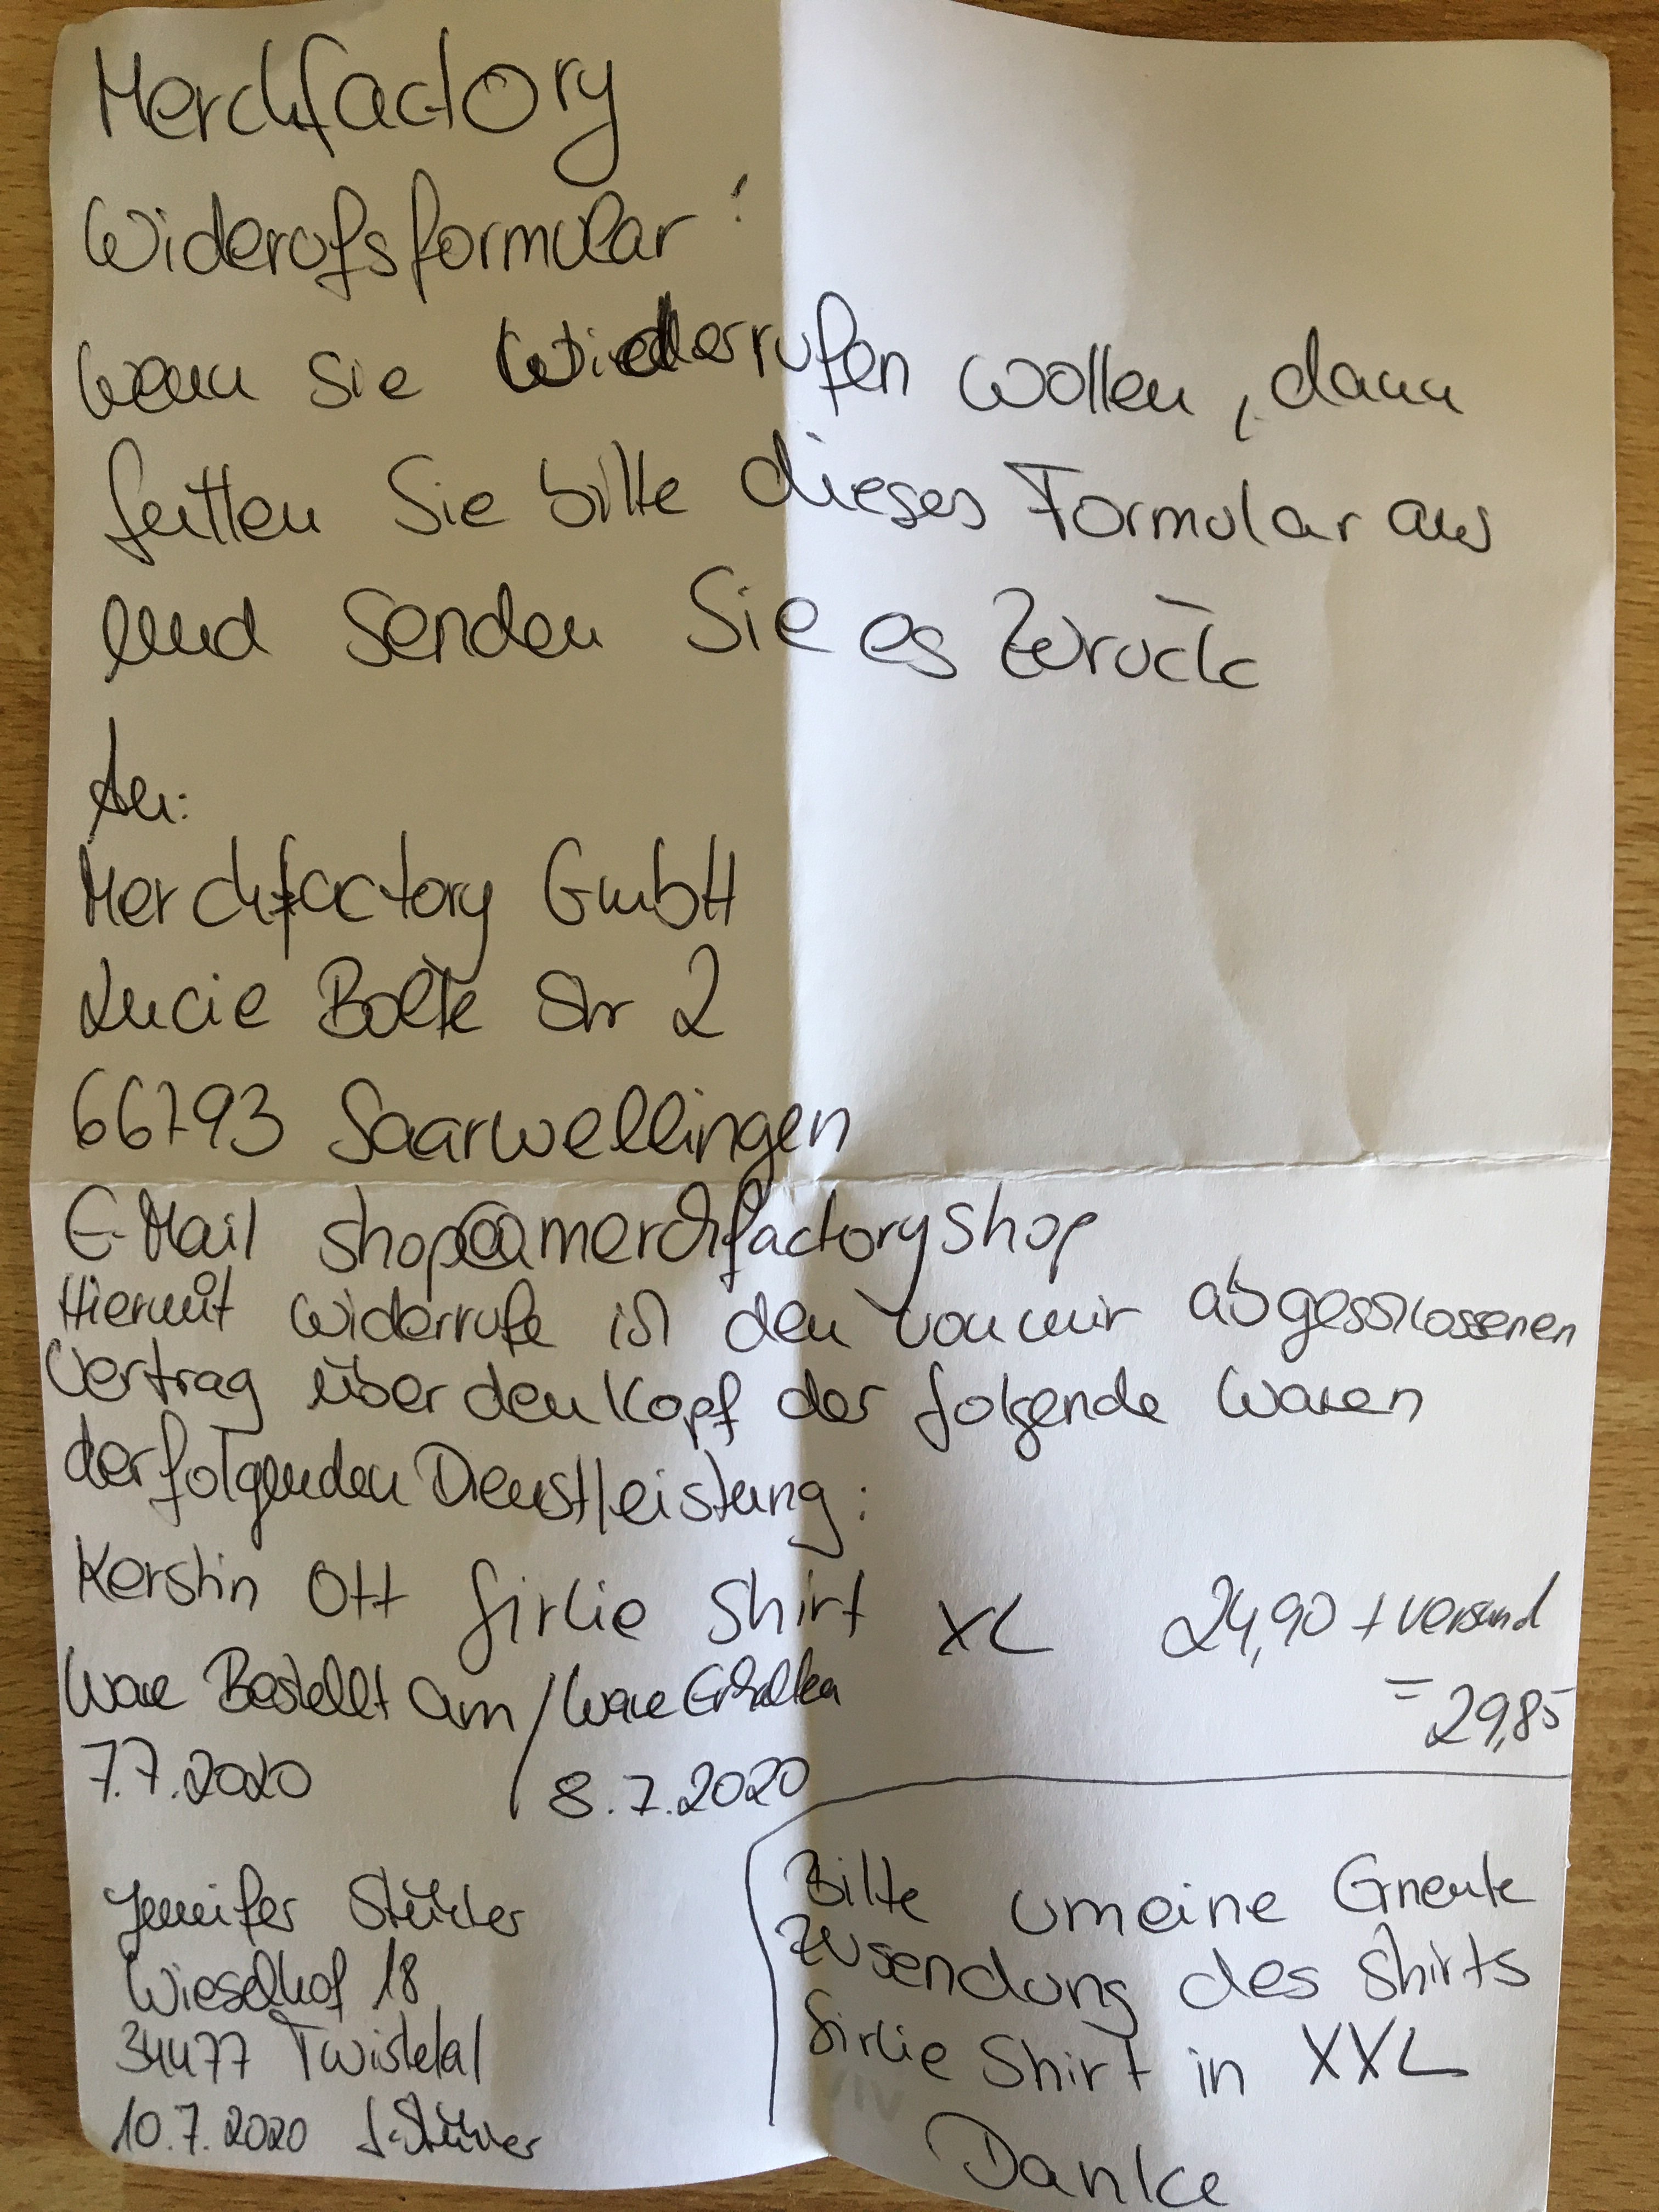 Merchfactory
Widerofsformular:
wenn Sie Wiederrufen wollen, dann
füllen Sie bitte dieses Formular aus
und senden Sie es Zurück
An:
Merchfactory GmbH
Lucie Bolte Str 2
66793 Saarwellingen
E-Mail shop@merchfactoryshop
Hiermit widerrufe ich den von mir abgeschlossenen
Vertrag über den Kopf der folgende Waren
der folgenden Dienstleistung:
Kerstin Ott Girlie Shirt XL 24,90 + Versand
= 29,85
Ware Bestellt am / Ware Erhalten
7.7.2020 / 8.7.2020
Jennifer Stühler
Wieselhof 18
34477 Twistetal
10.7.2020 J. Stühler
Bitte um eine Erneute
Zusendung des Shirts
Girlie Shirt in XXL
Danke